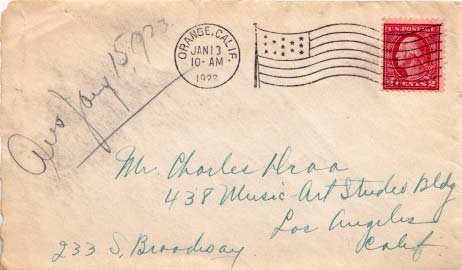 ORANGE, CALIF.
JAN 13
10-AM
1922
U.S. POSTAGE
2 CENTS 2
Ans Jany 15, 1923
Mr. Charles Draa
438 Music-Art Studio Bldg
Los Angeles
233 S. Broadway. Calif